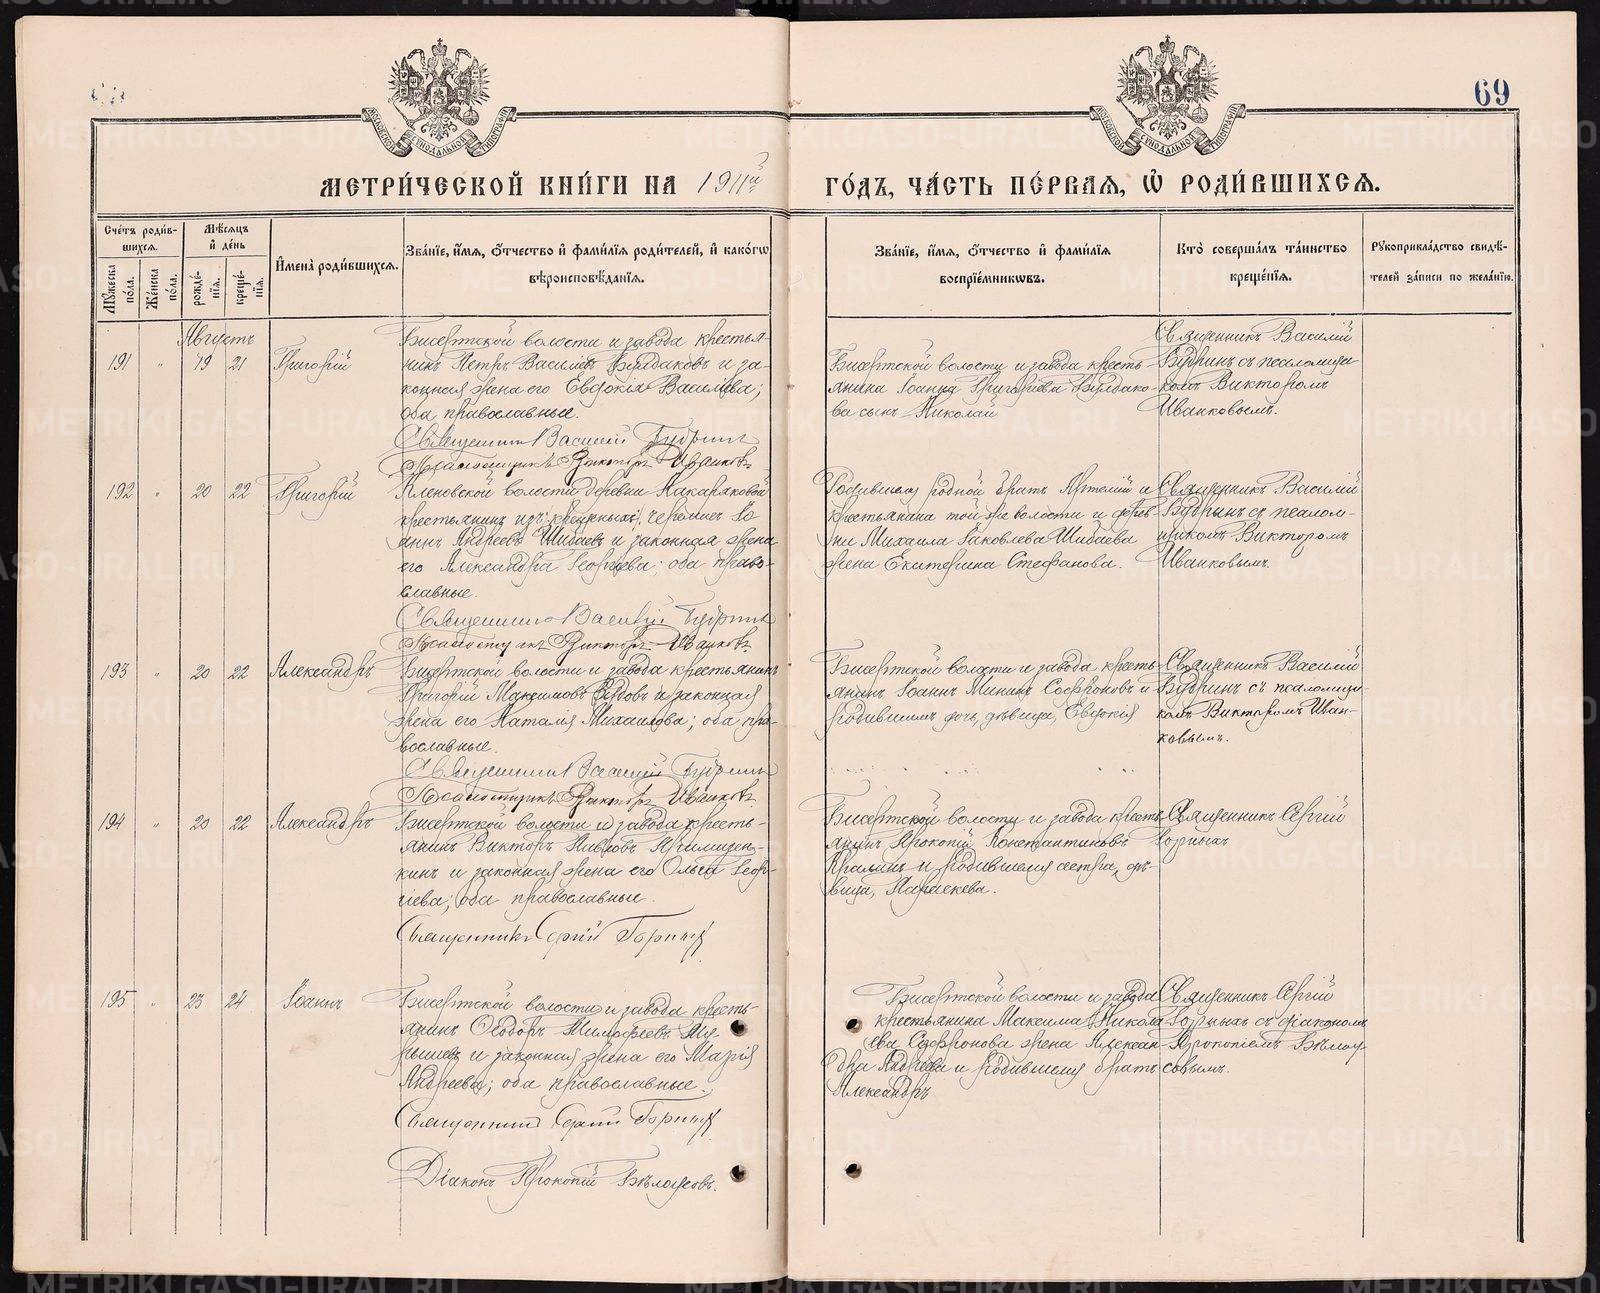 69
МЕТРИ́ЧЕСКОЙ КНИ́ГИ НА 1911й
ГО́ДЪ, ЧА́СТЬ ПЕ́РВАѦ, Ѽ РОДИ́ВШИХСѦ.
Сче́тъ роди́в-
шихсѧ.
Мѣ́сѧцъ
и҆ де́нь
Мꙋ́жеска
по́ла.
Же́нска
по́ла.
рожде́-
нїѧ.
креще́-
нїѧ.
И҆мена̀ роди́вшихсѧ.
Зва́нїе, и҆́мѧ, ѻ҆́тчество и҆ фами́лїѧ роди́телей, и҆ како́гѡ
вѣроисповѣ́данїѧ.
Зва́нїе, и҆́мѧ, ѻ҆́тчество и҆ фами́лїѧ
воспрїе́мникѡвъ.
Кто̀ соверша́лъ та́инство
креще́нїѧ.
Рꙋкоприкла́дство свидѣ́-
телей за́писи по жела́нїю.
Августъ
191 " 19 21 Григорій
Бисертской волости и завода крестья-
нинъ Петръ Василіевъ Булдаковъ и за-
конная жена его Евдокія Василіева;
оба православные.
Священникъ Василій Будринъ
Псаломщикъ Викторъ Иванковъ
Бисертской волости и завода кресть-
янина Іоанна Григоріева Булдако-
ва сынъ Николай
Священникъ Василій
Будринъ съ псаломщи-
комъ Викторомъ
Иванковымъ.
192 " 20 22 Григорій
Кленовской волости деревни Накаряковой
крестьянинъ изъ крещеныхъ черемисъ Іо-
аннъ Андреевъ Шибаевъ и законная жена
его Александра Георгіева; оба право-
славные.
Священникъ Василій Будринъ
Псаломщикъ Викторъ Иванковъ
Родившагося родной братъ Артемій и
крестьянина той же волости и дерев-
ни Михаила Іаковлева Шибаева
жена Екатерина Стефанова.
Священникъ Василій
Будринъ съ псалом-
щикомъ Викторомъ
Иванковымъ.
193 " 20 22 Александръ
Бисертской волости и завода крестьянинъ
Григорій Максимовъ и законная
жена его Наталія Михаилова; оба пра-
вославные.
Священникъ Василій Будринъ
Псаломщикъ Викторъ Иванковъ
Бисертской волости и завода кресть-
янинъ Іоаннъ Мининъ Софроновъ и
дочь, дѣвица, Евдокія
Священникъ Василій
Будринъ съ псаломщи-
комъ Викторомъ Иван-
ковымъ.
194 " 20 22 Александръ
Бисертской волости и завода кресть-
янинъ Викторъ Павловъ
и законная жена его Ольга Геор-
гіева; оба православные.
Священникъ Сергій Горныхъ
Бисертской волости и завода кресть-
янинъ Прокопій Константиновъ
и родившагося сестра, дѣ-
вица, Параскева.
Священникъ Сергій
Горныхъ
195 " 23 24 Іоаннъ
Бисертской волости и завода кресть-
янинъ Ѳеодоръ Тимофеевъ
и законная жена его Марія
Андреева; оба православные.
Священникъ Сергій Горныхъ
Діаконъ Прокопій Бѣлоусовъ.
Бисертской волости и завода
крестьянина Максима Никола-
ева Софронова жена Алексан-
дра Андреева и родившагося братъ
Александръ
Священникъ Сергій
Горныхъ съ діакономъ
Прокопіемъ Бѣлоу-
совымъ.